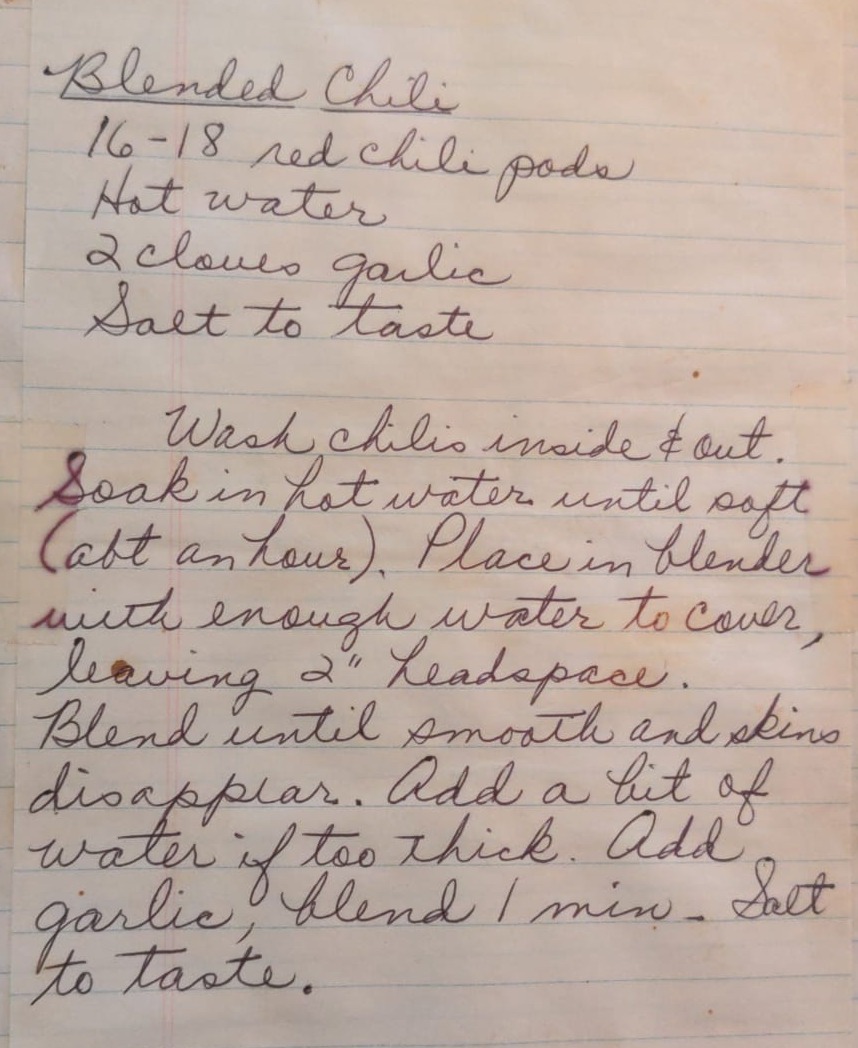 Blended Chili
16-18 red chili pods
Hot water
2 cloves garlic
Salt to taste
Wash chilis inside & out.
Soak in hot water until soft
(abt an hour). Place in blender
with enough water to cover,
leaving 2" headspace.
Blend until smooth and skins
disappear. Add a bit of
water if too thick. Add
garlic, blend 1 min. Salt
to taste.